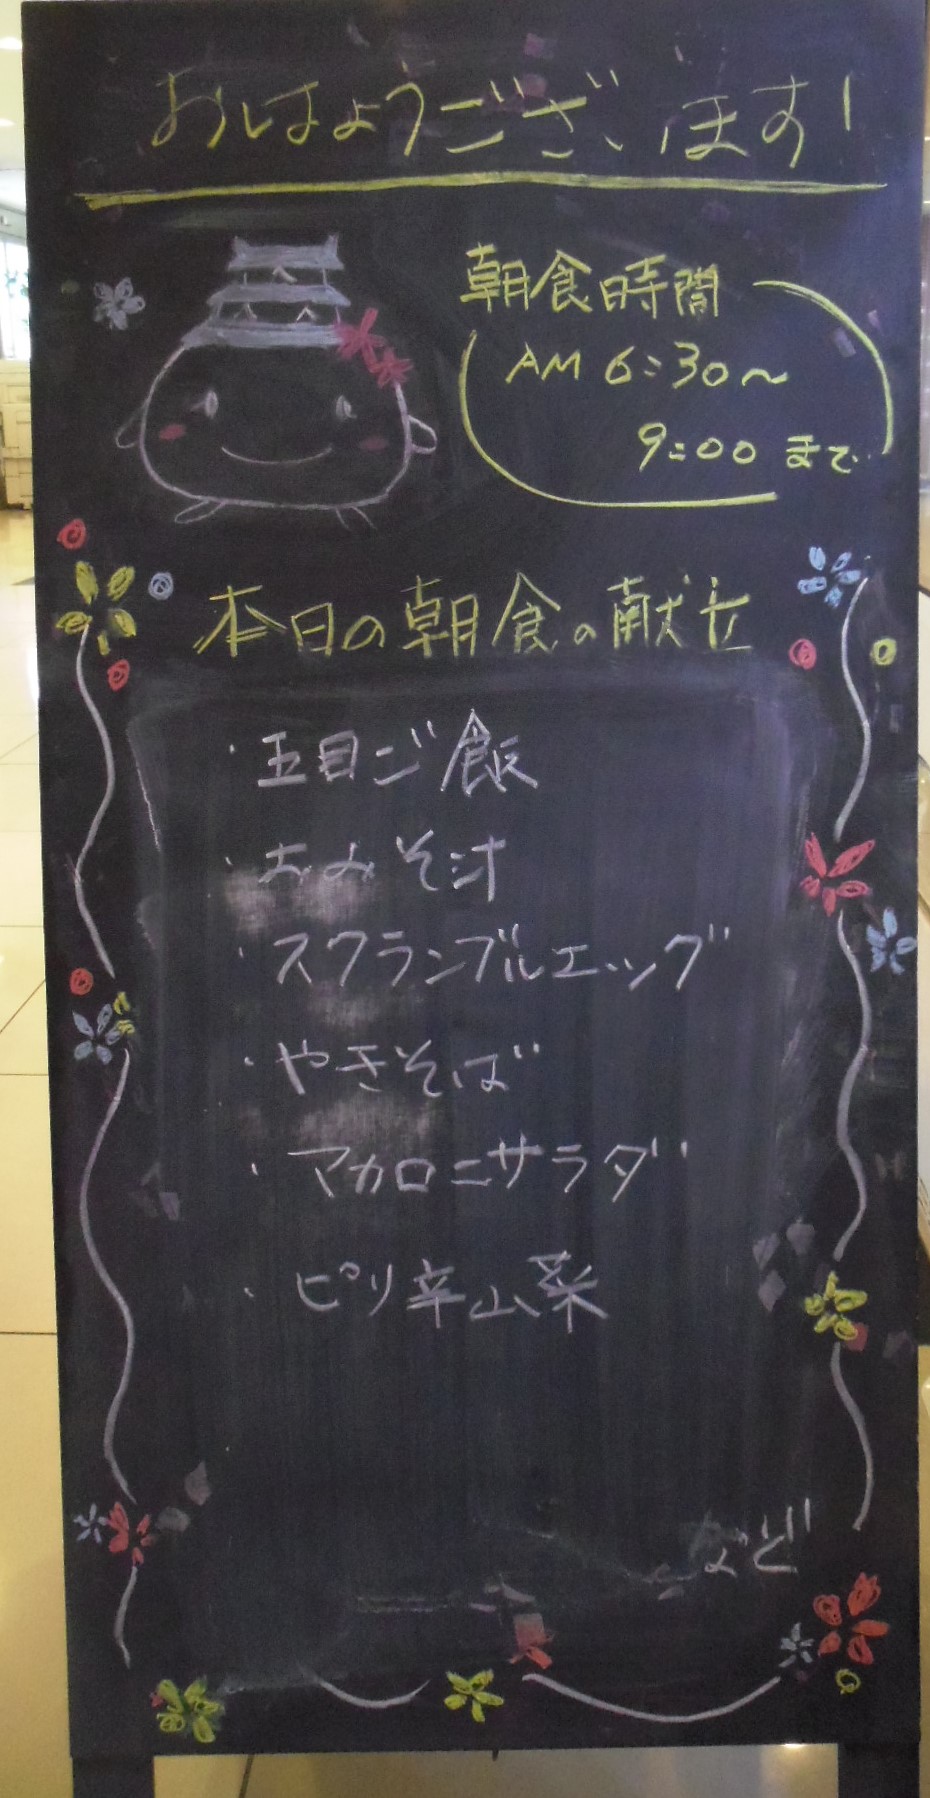 おはようございます!
朝食時間
AM 6:30~
9:00 まで
本日の朝食の献立
・五目ご飯
・おみそ汁
・スクランブルエッグ
・やきそば
・マカロニサラダ
・ピリ辛山菜
など